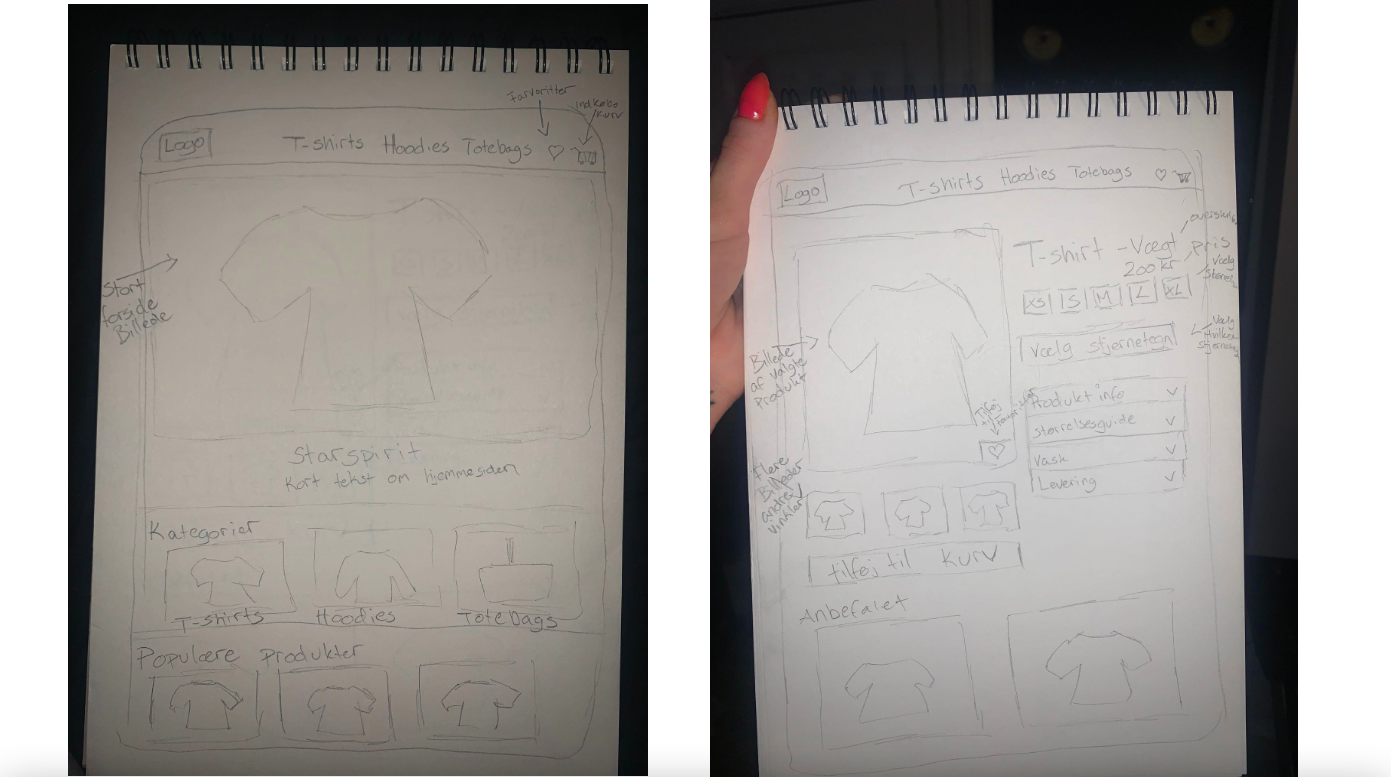 Favoritter
indkøbs
kurv
Logo
T-shirts Hoodies Totebags
Start
forside
Billede
Starspirit
Kort tekst om hjemmesiden
Kategorier
T-shirts
Hoodies
Tote bags
Populære produkter
Logo
T-shirts Hoodies Totebags
T-shirt - Vægt
pris
200 kr
Vælg
XS S M L XL
Vælg
Vælg stjernetegn
Billede
af valgte
produkt
Tilføj
til
Produkt info
størrelsesguide
Vask
Levering
flere
Billeder
andre
vinkler
tilføj til kurv
Anbefalet